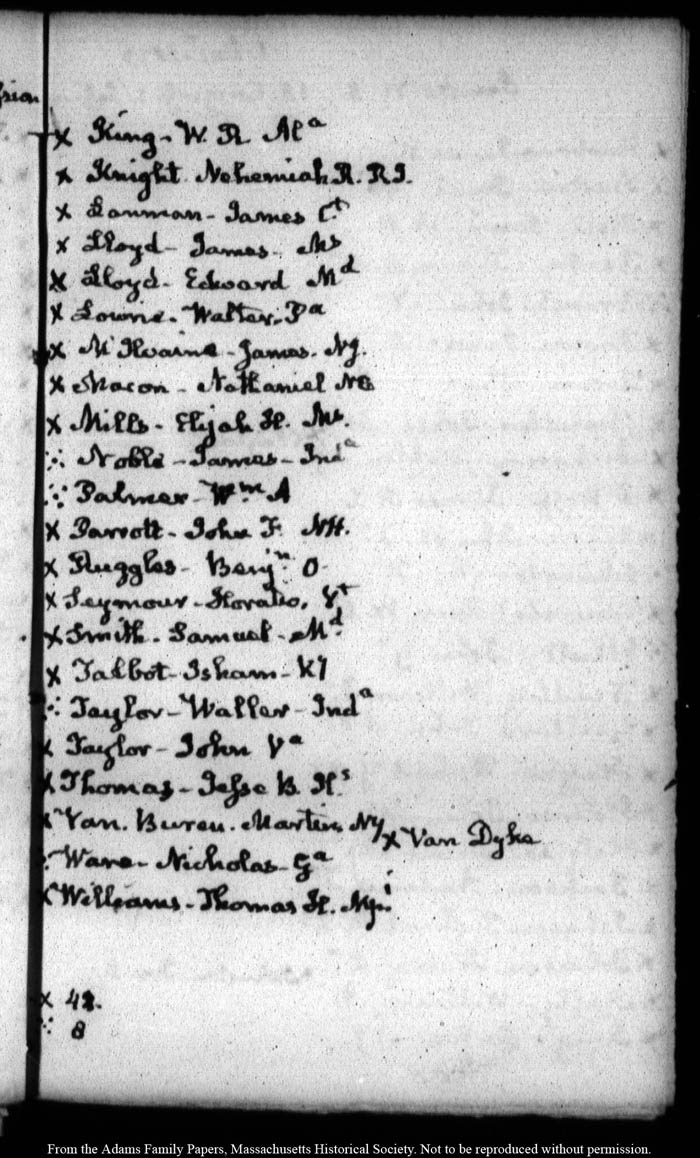 × King - W. R. Alᵃ
× Knight. Nehemiah R. R I.
× Lanman - James Cᵗ
× Lloyd - James - Ms
× Lloyd - Edward Mᵈ
× Lowrie - Walter. Pᵃ
× McIlvaine - James. NJ.
× Macon - Nathaniel NC
× Mills - Elijah H. Ms.
∵ Noble - James - Indᵃ
∵ Palmer - Wᵐ A
× Parrott - John F. NH.
× Ruggles - Benjⁿ O.
× Seymour - Horatio. Vᵗ
× Smith - Samuel - Mᵈ
× Talbot - Isham - Ky
∵ Taylor - Waller - Indᵃ
× Taylor - John Vᵃ
× Thomas - Jesse B. Ilˢ
× Van. Buren. Martin, NY × Van Dyke
∵ Ware - Nicholas - Gᵃ
× Williams - Thomas H. Mpⁱ
× 42.
∵ 8
From the Adams Family Papers, Massachusetts Historical Society. Not to be reproduced without permission.